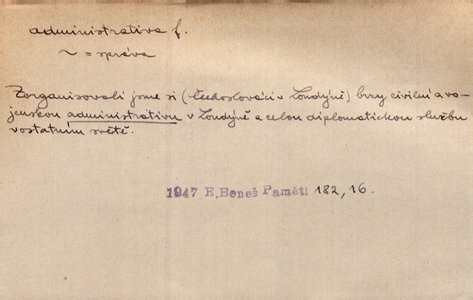 administrativa f.
~ = správa
Zorganisovali jsme si (Čechoslováci v Londýně) brzy civilní a vo-
jenskou administrativu v Londýně a celou diplomatickou službu
v ostatním světě.
1947 E. Beneš Paměti 182, 16.